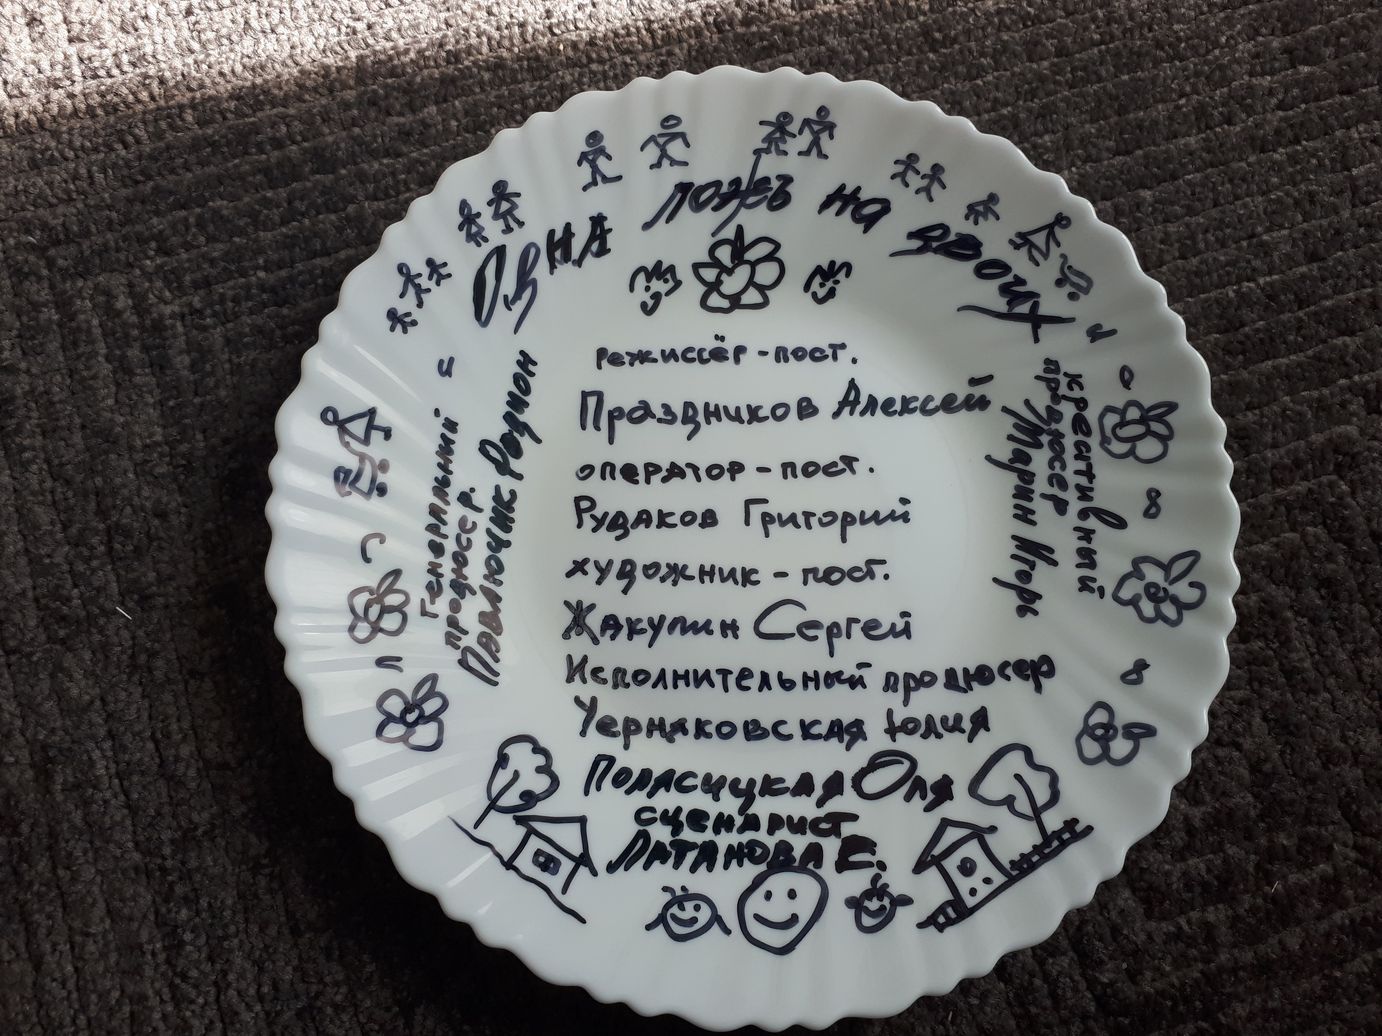 Одна ложь на двоих
режиссёр-пост.
Праздников Алексей
оператор-пост.
Рудаков Григорий
художник-пост.
Жакупин Сергей
Исполнительный продюсер
Черняковская Юлия
Полясицкая Оля
сценарист
Латанова Е.
Генеральный
продюсер.
Павлючик Родион
креативный
продюсер
Марин Игорь